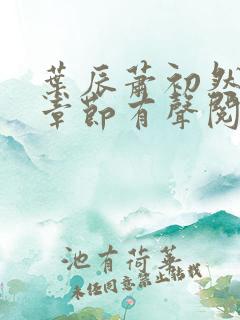 葉辰蕭初然
章節有聲閱
池有荷葉
未經同意禁止轉載